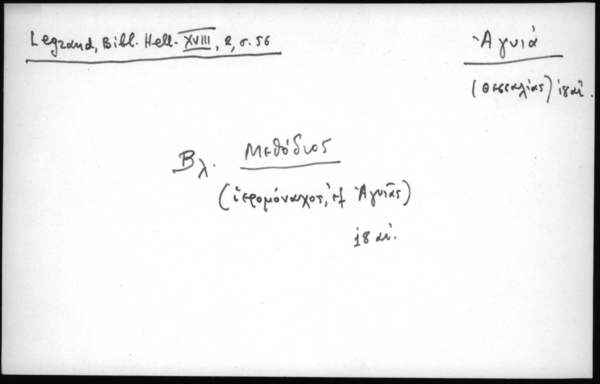 Legrand, Bibl. Hell. XVIII, 2, σ. 56
Ἀγυιά
(Θεσσαλίας) 18 αἰ.
Βλ. Μεθόδιος
(ἱερομόναχος, ἐξ Ἀγυιᾶς)
18 αἰ.